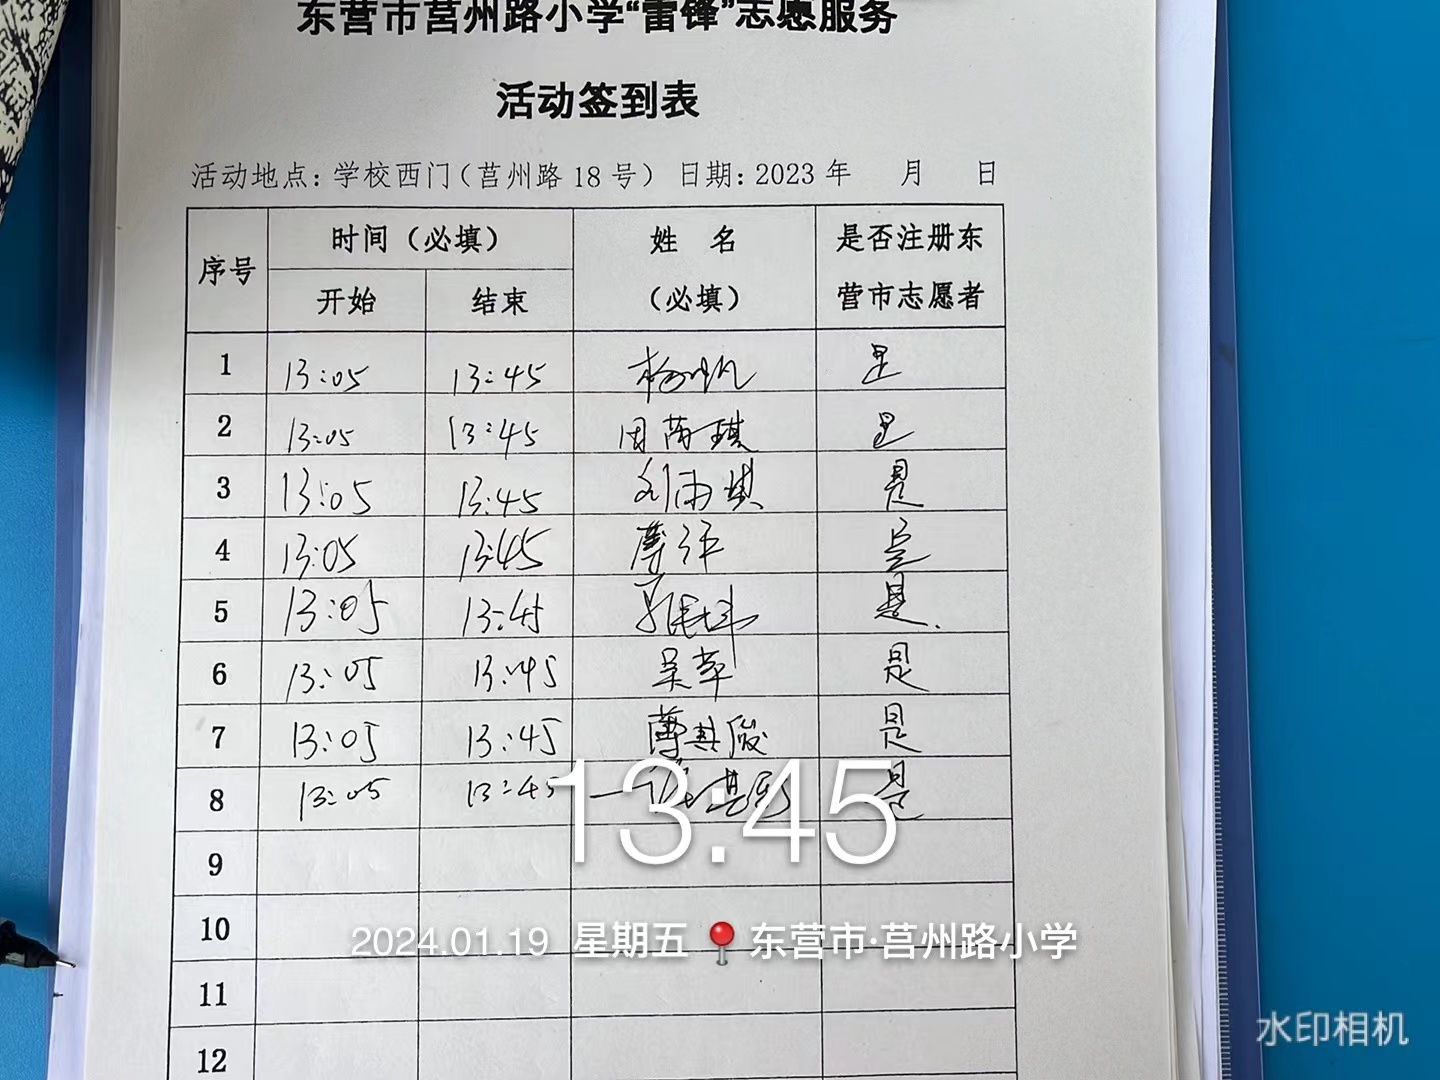 东营市莒州路小学“雷锋”志愿服务
活动签到表
活动地点：学校西门（莒州路 18 号） 日期：2023 年 月 日
序号 时间（必填） 姓 名 是否注册东
开始 结束 （必填） 营市志愿者
1 13:05 13:45 是
2 13:05 13:45 是
3 13:05 13:45 是
4 13:05 13:45 是
5 13:05 13:45 是
6 13:05 13:45 吴苹 是
7 13:05 13:45 薄其俊 是
8 13:05 13:45 是
13:45
9
10
2024.01.19 星期五 东营市·莒州路小学
11
12
水印相机